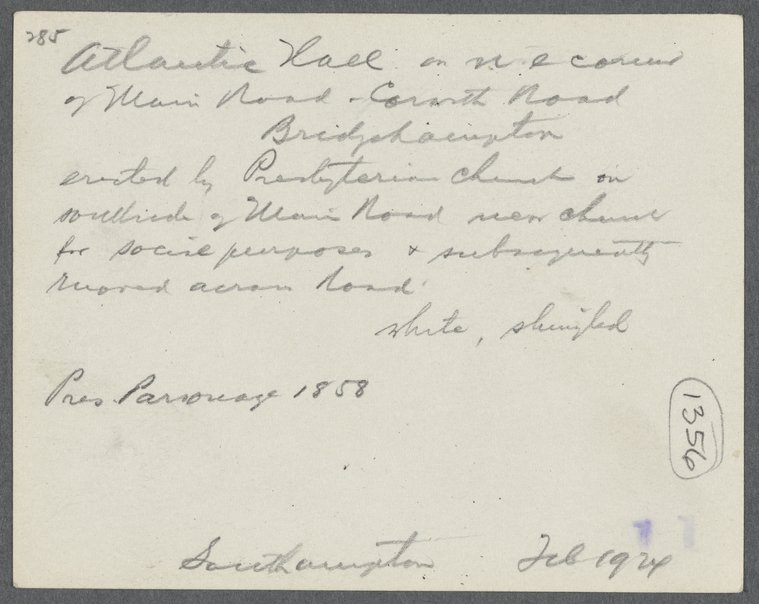 285
Atlantic Hall on N. E corner
of Main Road - Corwith Road
Bridgehampton
erected by Presbyterian Church on
southside of Main Road near church
for social purposes & subsequently
moved across Road.
white, shingled
Pres. Parsonage 1858
1356
Southampton Feb 1924